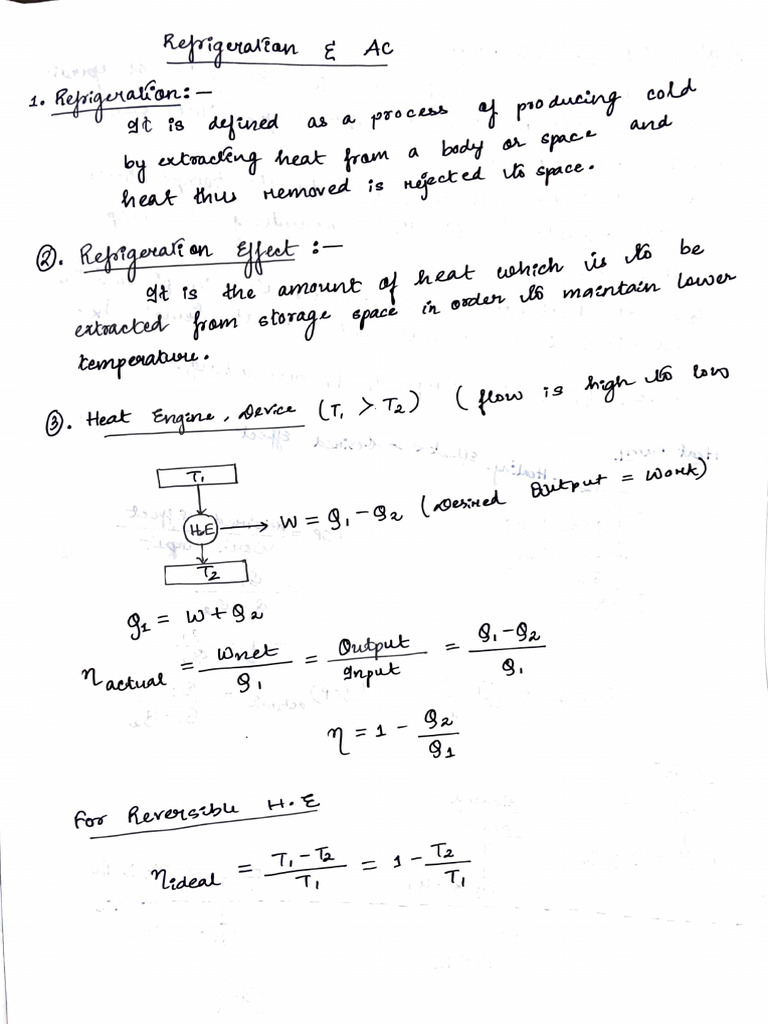 Refrigeration & AC
1. Refrigeration:-
It is defined as a process of producing cold
by extracting heat from a body or space and
heat thus removed is rejected to space.
②. Refrigeration Effect :-
It is the amount of heat which is to be
extracted from storage space in order to maintain lower
temperature.
③. Heat Engine, Device (T₁ > T₂) ( flow is high to low
T₁
H.E → W = Q₁ - Q₂ (Desired Output = Work)
T₂
Q₁ = W + Q₂
η actual = Wnet / Q₁ = Output / Input = Q₁ - Q₂ / Q₁
η = 1 - Q₂ / Q₁
For Reversible H.E
η ideal = T₁ - T₂ / T₁ = 1 - T₂ / T₁